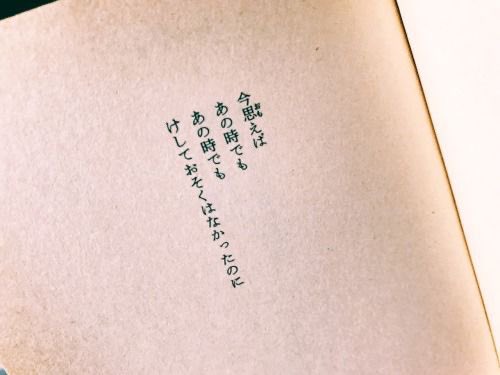 今思えば
あの時でも
あの時でも
けしておそくはなかったのに